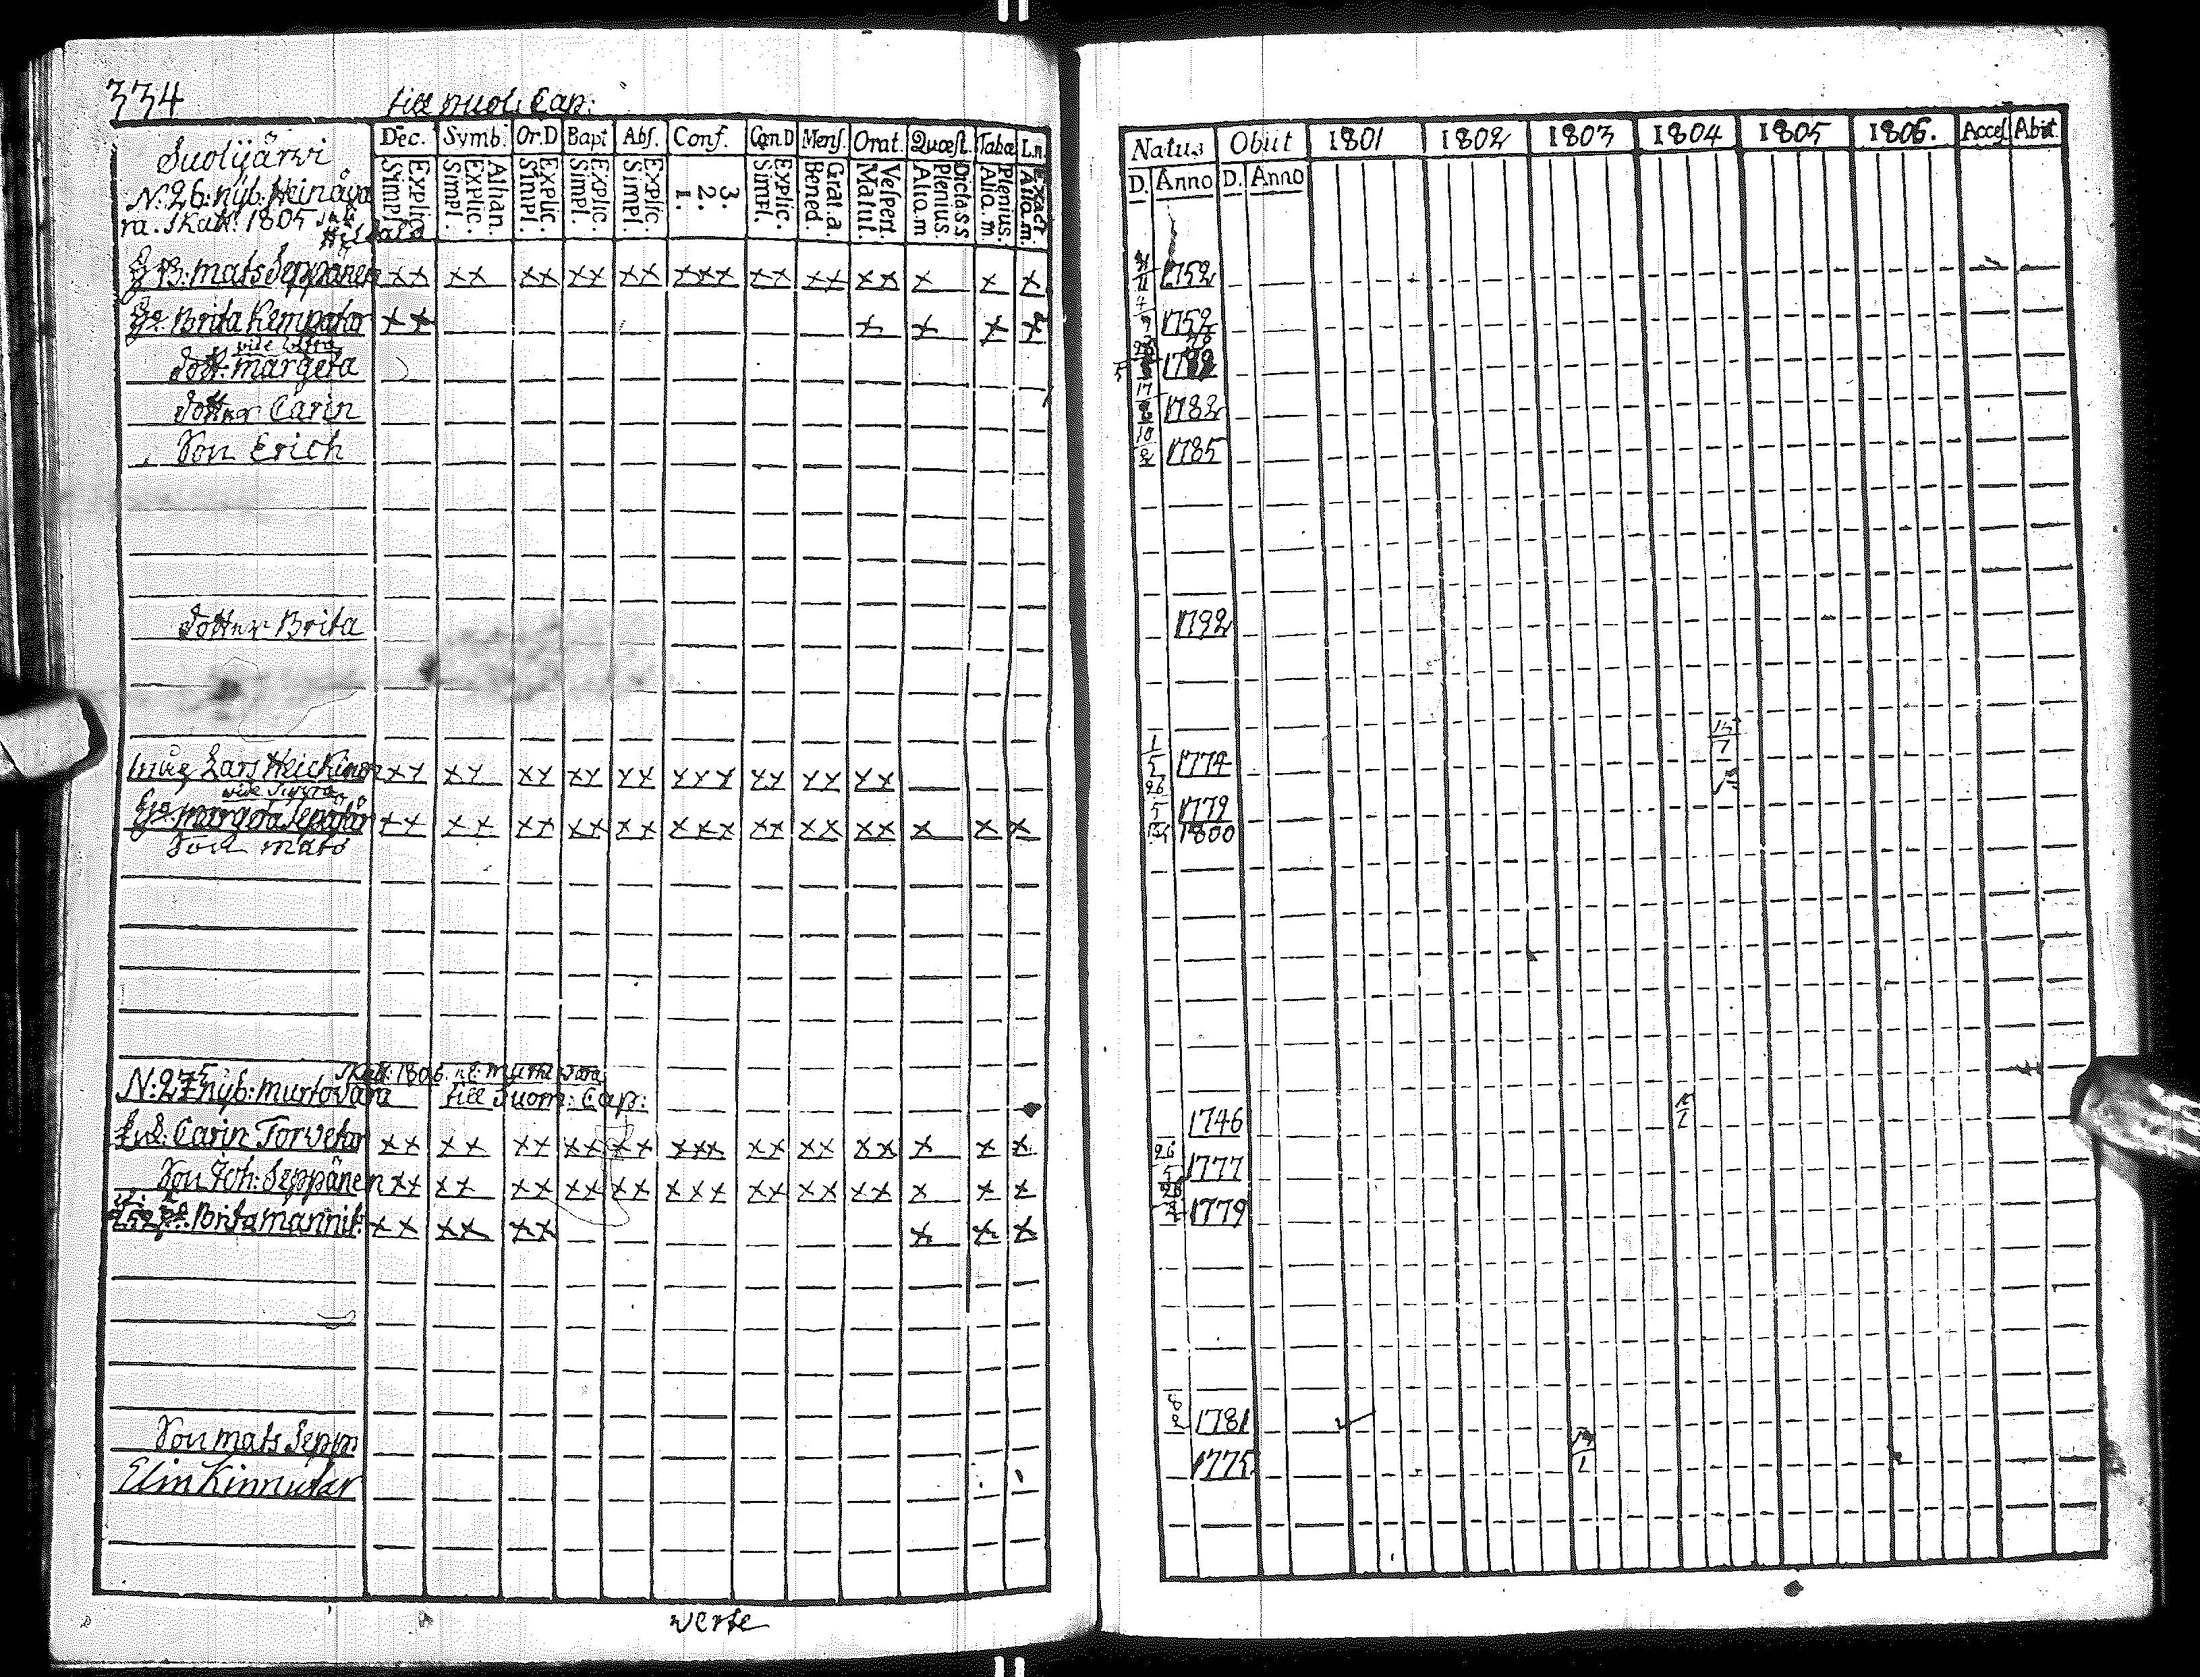 334
till Cap:
Dec. Symb. Or.D Bapt Abs. Conf. Con.D Mens. Orat. Quæst. Tabæ L.n.
Simpl. Explic. Simpl. Explic. Athan. Simpl. Explic. Simpl. Explic. Simpl. Explic. 1. 2. 3. Simpl. Explic. Bened. Grat.a. Matut. Vespert. Alio.m Plenius. Alio.m. Plenius. Alio.m. Exact
Suolijärvi
N:26: nyb: Heinäva
ra. Skatt: 1805
B: Mats Seppänen xx xx xx xx xx xxx xx xx xx x x x
Brita Kempatar xx x x x x
Dott: Margeta
Dotter Carin
Son Erich
Dotter Brita
Måg Lars Heickinen xx xx xx xx xx xxx xx xx xx
Margeta xx xx xx xx xx xxx xx xx xx x x x
Son Mats
Skatt: 1806.
N:27 nyb: Murtovara till Suom: Cap:
Carin Torvetar xx xx xx xx xx xxx xx xx xx x x x
Son Joh: Seppänen xx xx xx xx xx xxx xx xx xx x x x
Brita Mannit: xx xx xx x x x
Son Mats Sepp
Elin Kinnutar
verte
Natus Obiit 1801 1802 1803 1804 1805 1806. Access Abiit
D. Anno D. Anno
1752
4/9 1752
17 1782
10/2 1785
1792
1/5 1774
26/5 1779
1800
1746
26/5 1777
1779
1781
1775